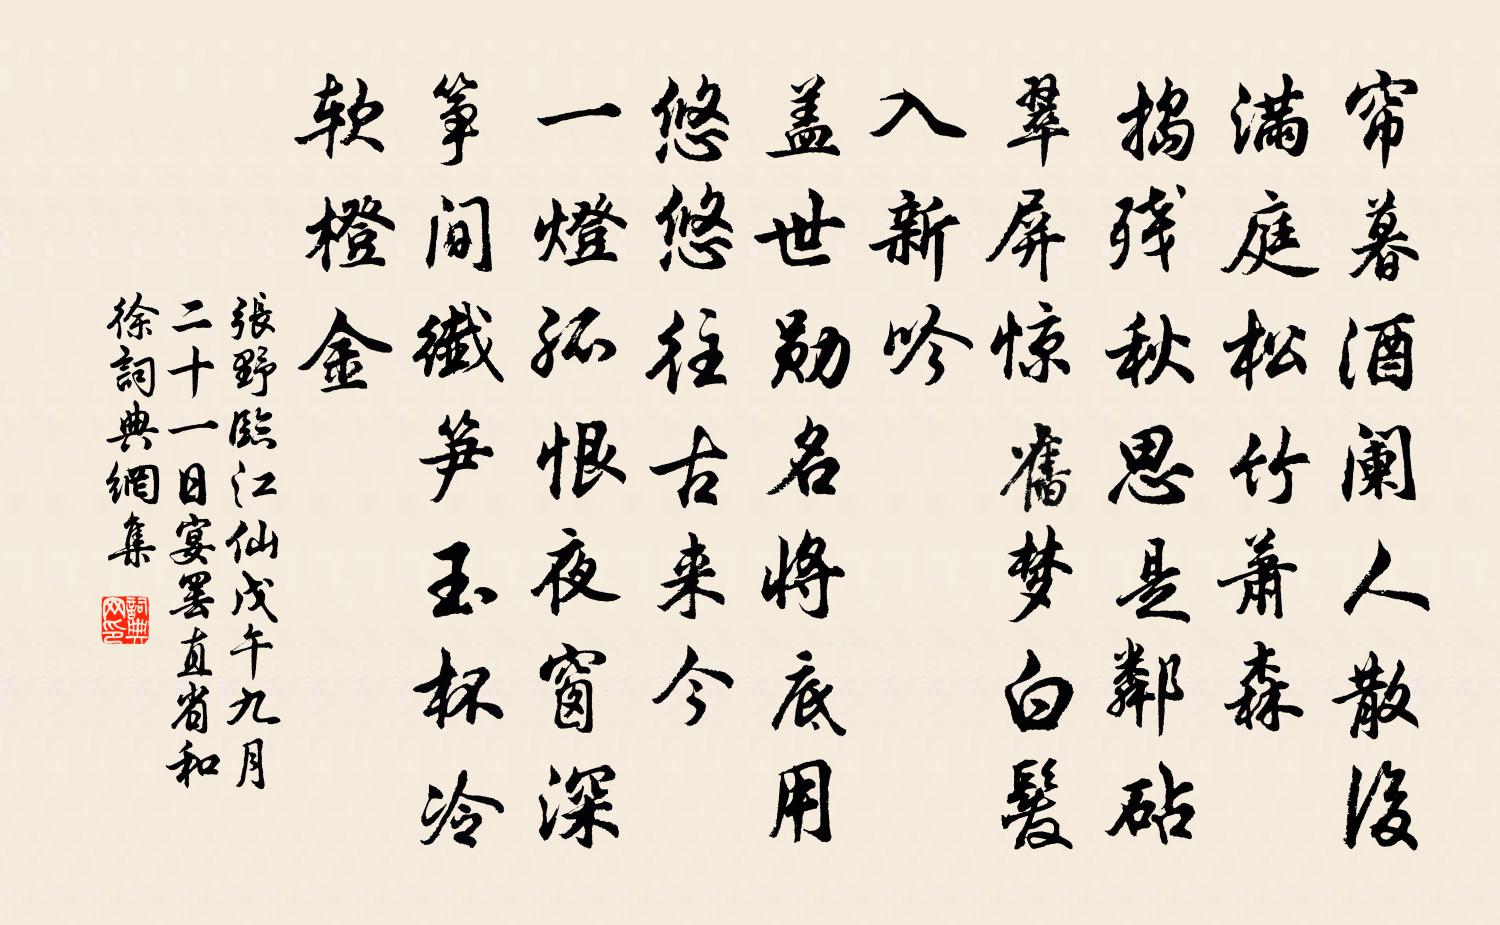 帘暮酒阑人散後
满庭松竹萧森
捣残秋思是鄰砧
翠屏惊舊梦白髮
入新吟
盖世勋名将底用
悠悠往古来今
一燈孤恨夜窗深
筝间纖笋玉杯冷
软橙金
張野臨江仙戊午九月
二十一日宴罢直省和
徐詞典網集
詞典网印